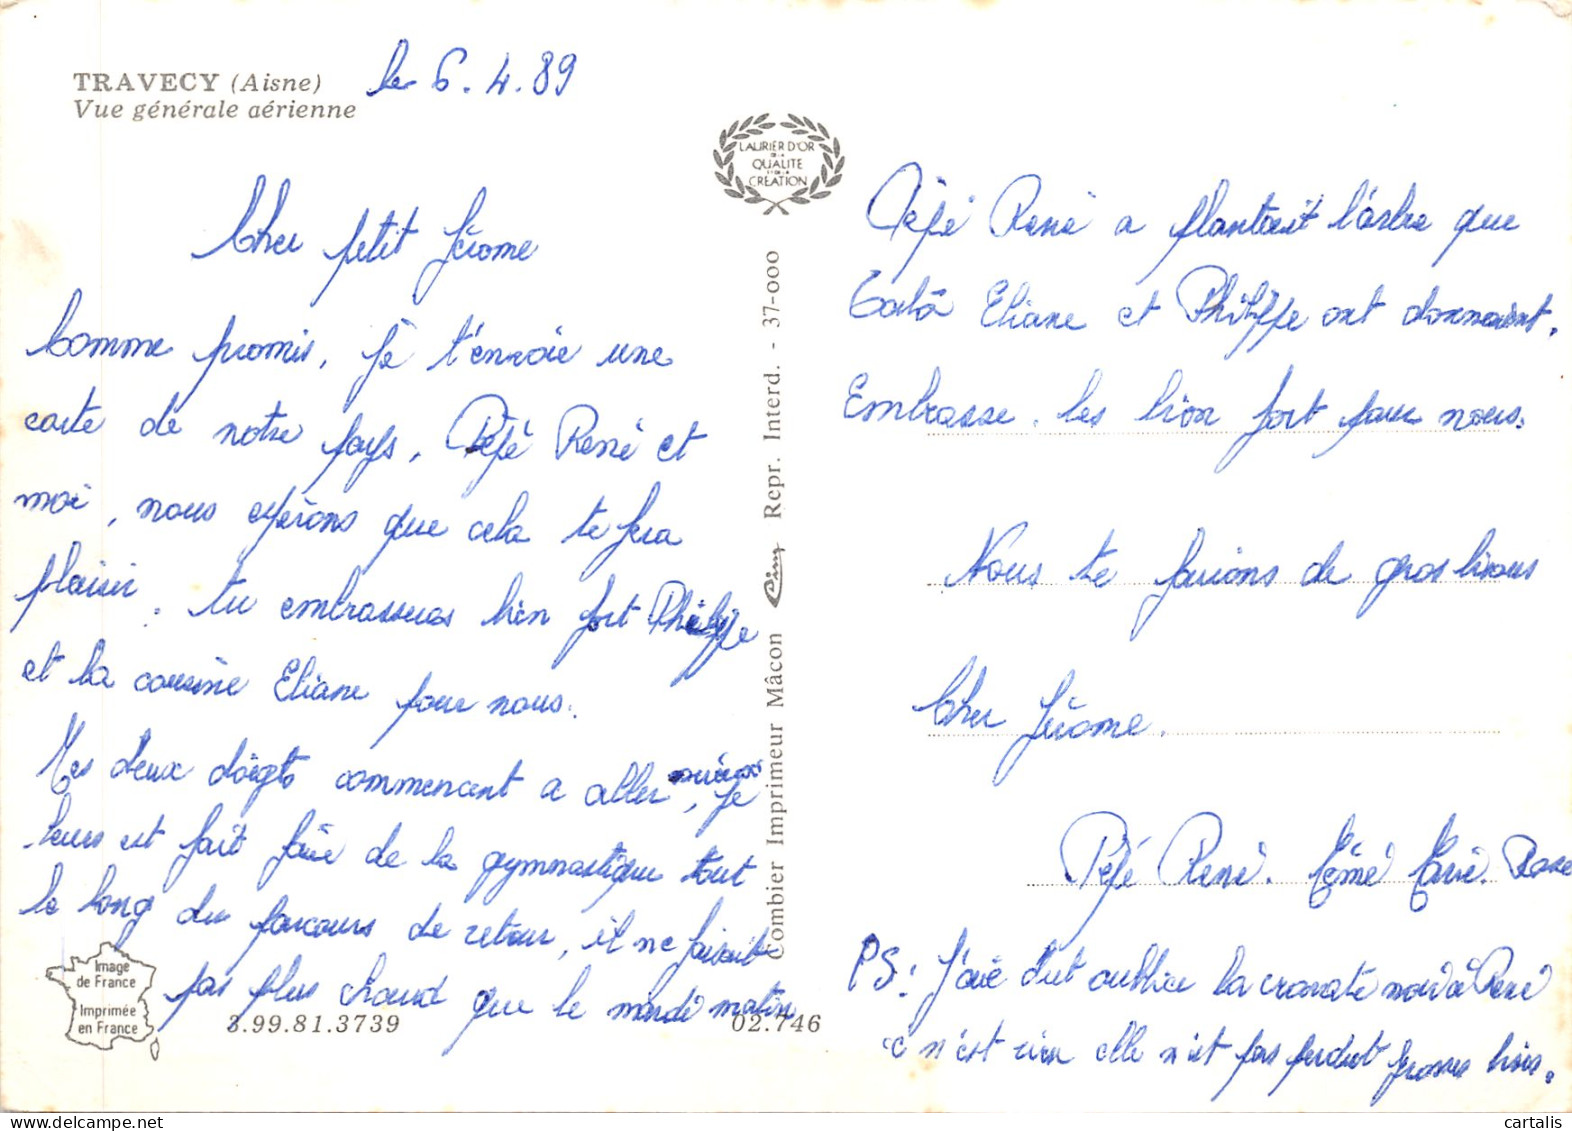 TRAVECY (Aisne)
Vue générale aérienne
le 6.4.89
LAURIER D'OR
DE LA
QUALITE
ET DE LA
CREATION
Cher petit Jérome
Comme promis, je t'envoie une
carte de notre pays, Pépé René et
moi, nous espérons que cela te fera
plaisir, tu embrasseras bien fort Philippe
et la cousine Eliane pour nous.
Mes deux doigts commencent a aller mieux, je
leurs est fait faire de la gymnastique tout
le long du parcours de retour, il ne faisait
pas plus chaud que le mardi matin
Image
de France
Imprimée
en France
3.99.81.3739
02.746
Combier Imprimeur Mâcon Cim Repr. Interd. - 37-000
Pépé René a plantait l'arbre que
Eliane et Philippe ont donnaient.
Embrasse les bien fort pour nous.
Nous te faisions de gros bisous
Cher Jérome.
Pépé René. Mémé Marie. Rose
PS: J'aie dut oublier la cravate noir à René
ce n'est rien elle n'est pas perdut grosses bises.